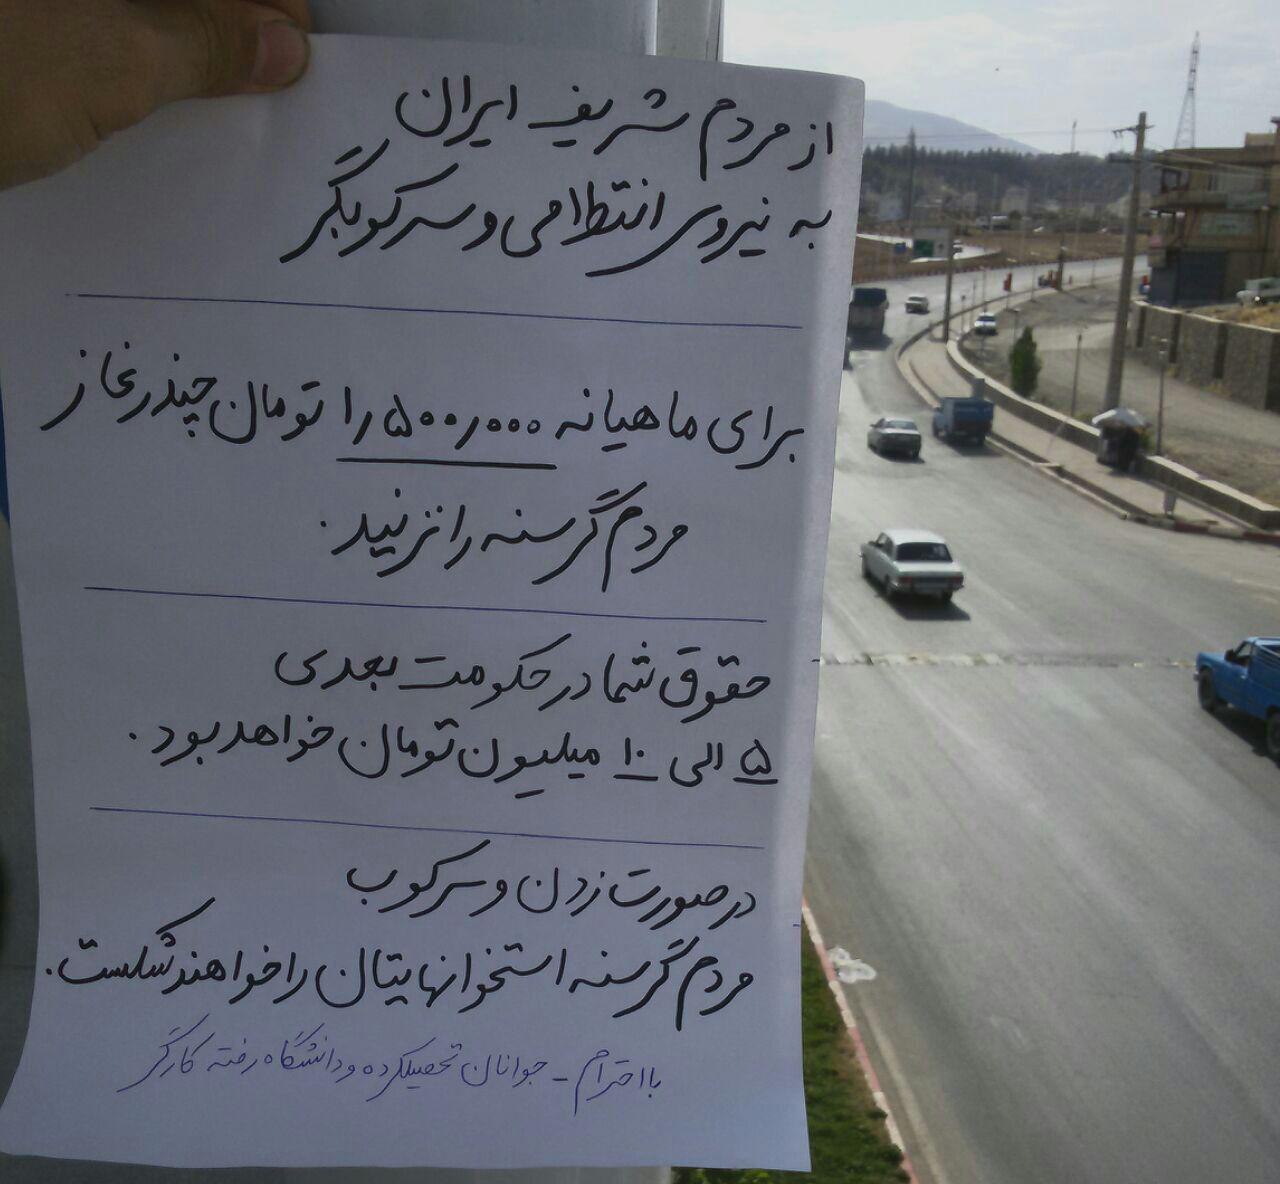 از مردم شریف ایران
به نیروی انتظامی و سرکوبگر
برای ماهیانه ۵۰۰٫۰۰۰را تومان چندرغاز
مردم گرسنه را نزنید.
حقوق شما در حکومت بعدی
۵ الی ۱۰ میلیون تومان خواهد بود.
در صورت زدن و سرکوب
مردم گرسنه استخوانهایتان را خواهند شکست.
با احترام - جوانان تحصیلکرده و دانشگاه رفته کارگر